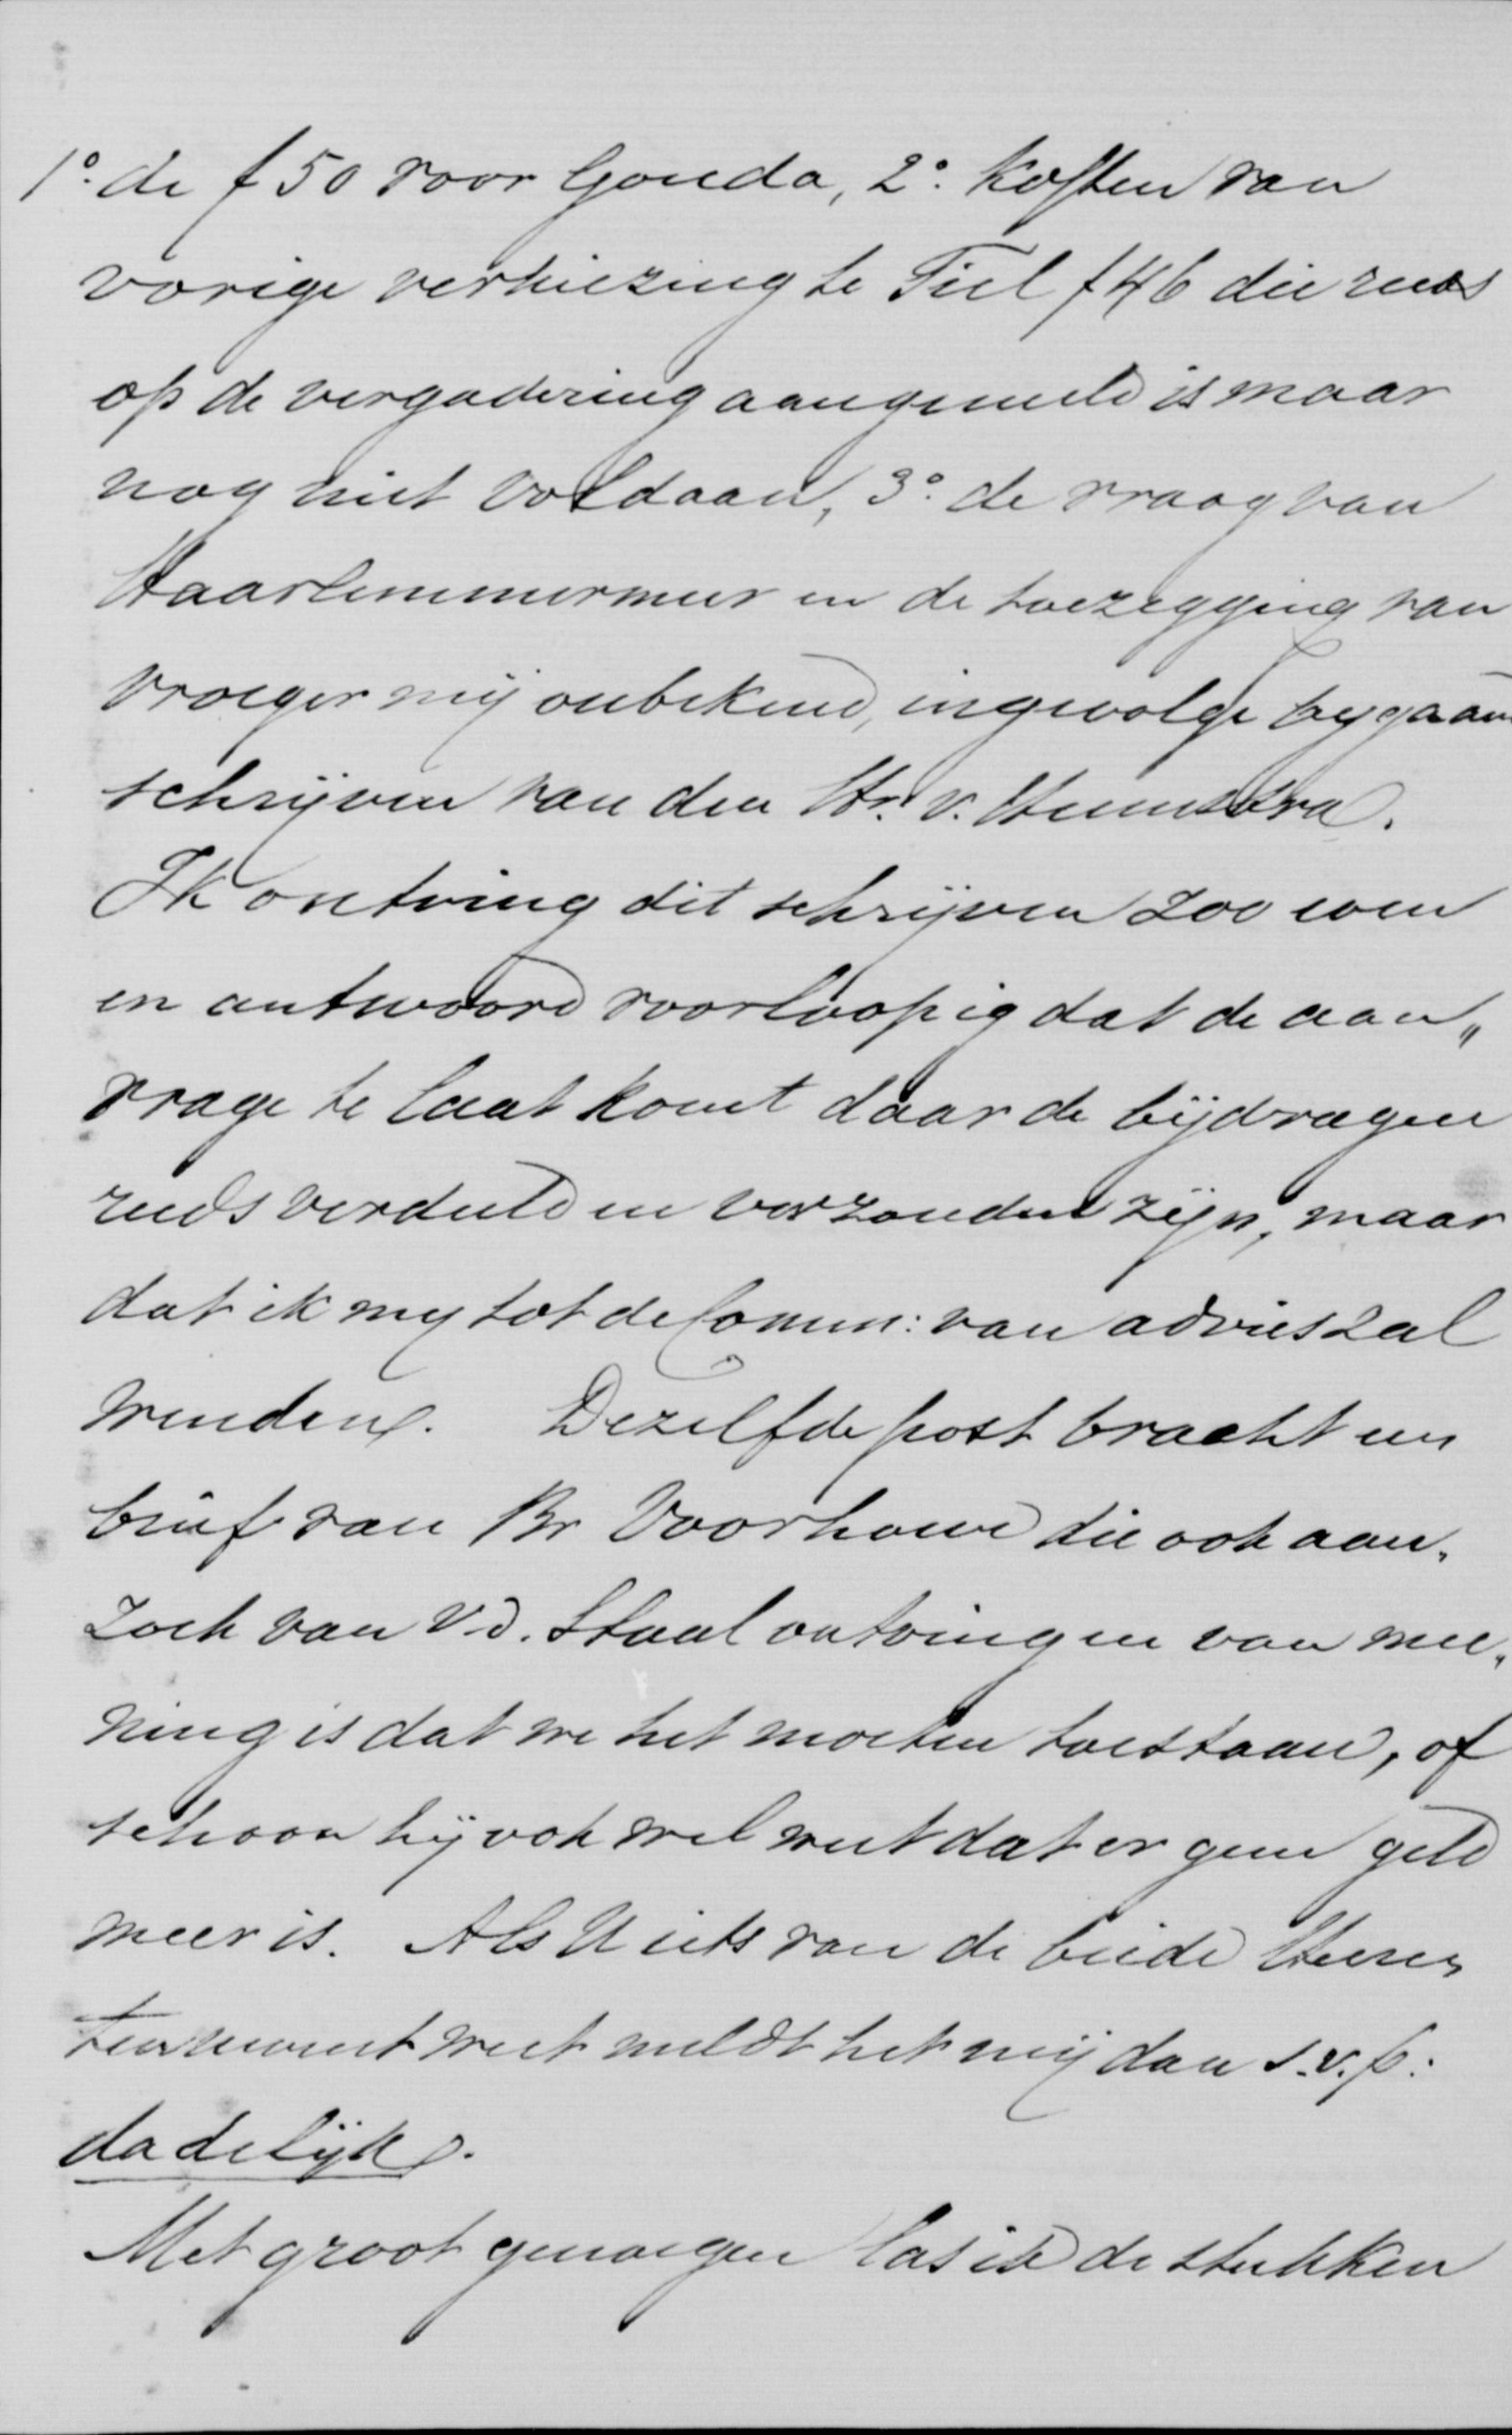 1o. de f 50 voor Gouda, 2o. Kosten van
vorige verkiezing te Tiel f 46 die reeds
op de vergadering aangemeld is maar
nog niet voldaan, 3o. de vraag van
Haarlemmermeer en de toezegging van
vroeger mij onbekend, ingevolge bygaand
schrijven van den Hr. v.
Ik ontving dit schrijven zoo even
en antwoord voorloopig dat de aan„
vrage te laat komt daar de bijdragen
reeds verdeeld en verzonden zijn, maar
dat ik my tot de Comm: van advies zal
wenden. Dezelfde post bracht een
brief van Br Voorhoeve die ook aan„
zoek van v.d. Staal ontving en van mee„
ning is dat we het moeten toestaan, of
schoon hij ook wel weet dat er geen geld
meer is. Als U iets van de beide Heeren
weet meldt het mij dan s.v.p:
dadelijk.
Met groot genoegen las ik de stukken